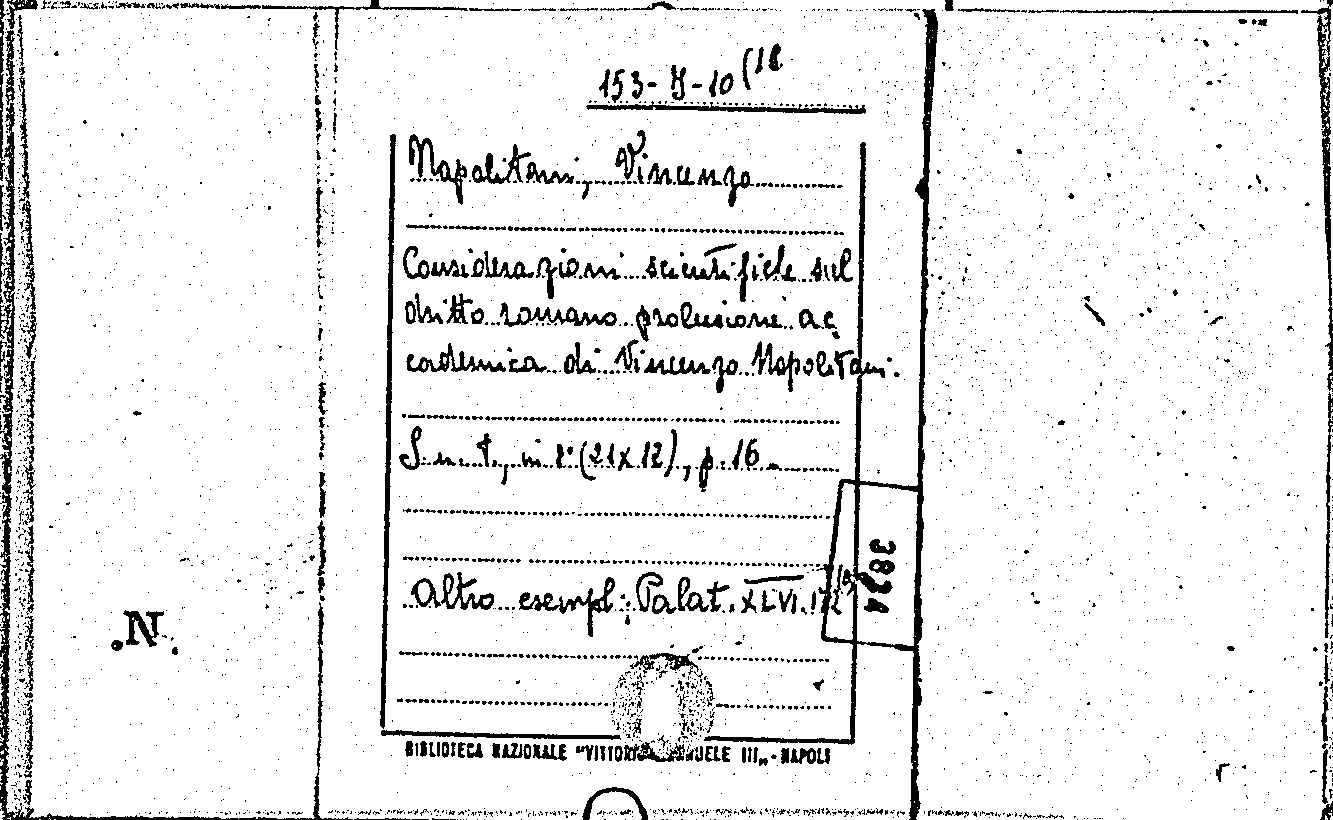 153-J-10(18
Napolitani, Vincenzo
Considerazioni scientifiche sul
dritto romano prolusione ac
cademica di Vincenzo Napolitani.
S. n. t., in 8°(21x12), p. 16.
Altro esempl: Palat. XLVI.
3834
.N.
BIBLIOTECA NAZIONALE "VITTORIO EMANUELE III„-NAPOLI